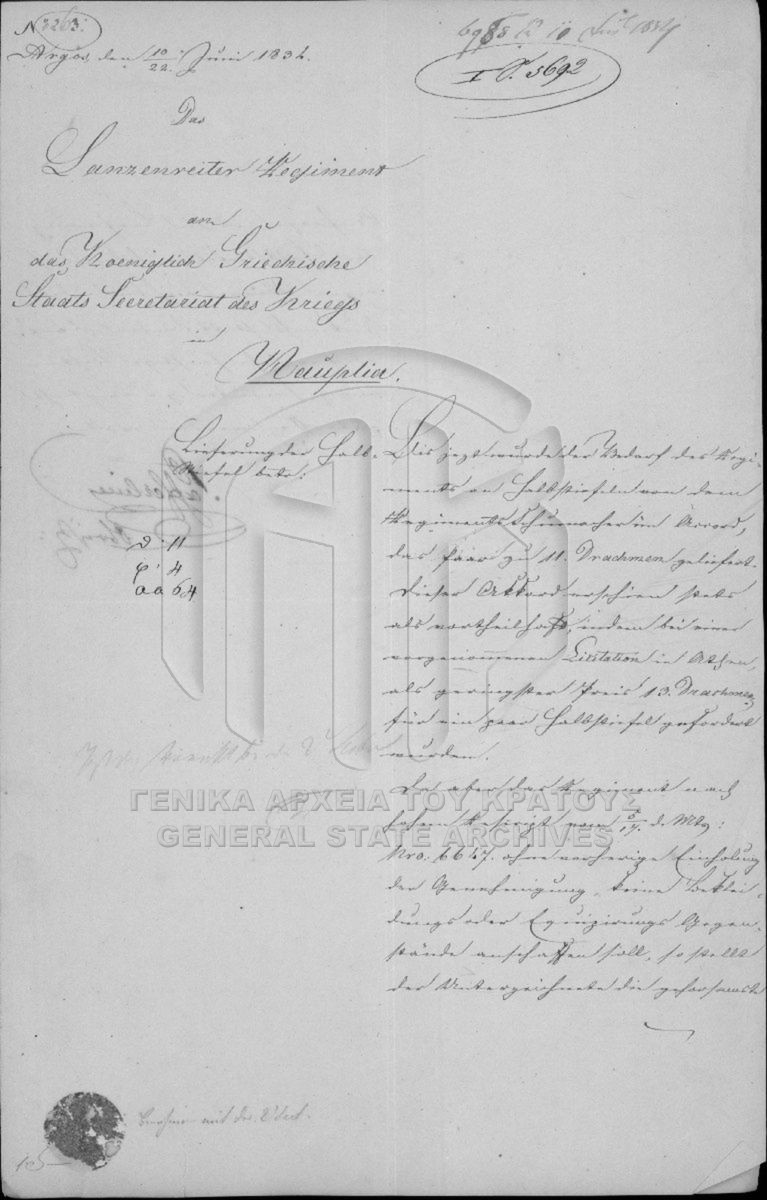 N 3263.
Argos, den 10/22. Juni 1834.
I P. 5692
Das
Lanzenreiter Regiment
an
das Koeniglich Griechische
Staats Secretariat des Kriegs
in
Nauplia.
Lieferung der Halb-
stiefel betr:
D. 11
4
64
Bis jezt wurde der Bedarf des Regi-
ments an Halbstiefeln von dem
Regiments Schumacher im Accord,
das Paar zu 11. Drachmen geliefert.
Dieser Akkord erschien stets
als vortheilhaft, indem bei einer
vorgenommenen Licitation in Athen,
als geringster Preis 13. Drachmen,
für ein paar Halbstiefel gefordert
wurden.
Da aber das Regiment nach
hohem Rescript vom /17. d. Mts:
Nro: 6647. ohne vorherige Einholung
der Genehmigung, keine Beklei-
dungs oder Equipirungs Gegen-
stände anschaffen soll, so stellt
der Unterzeichnete die gehorsamste
ΓΕΝΙΚΑ ΑΡΧΕΙΑ ΤΟΥ ΚΡΑΤΟΥΣ
GENERAL STATE ARCHIVES